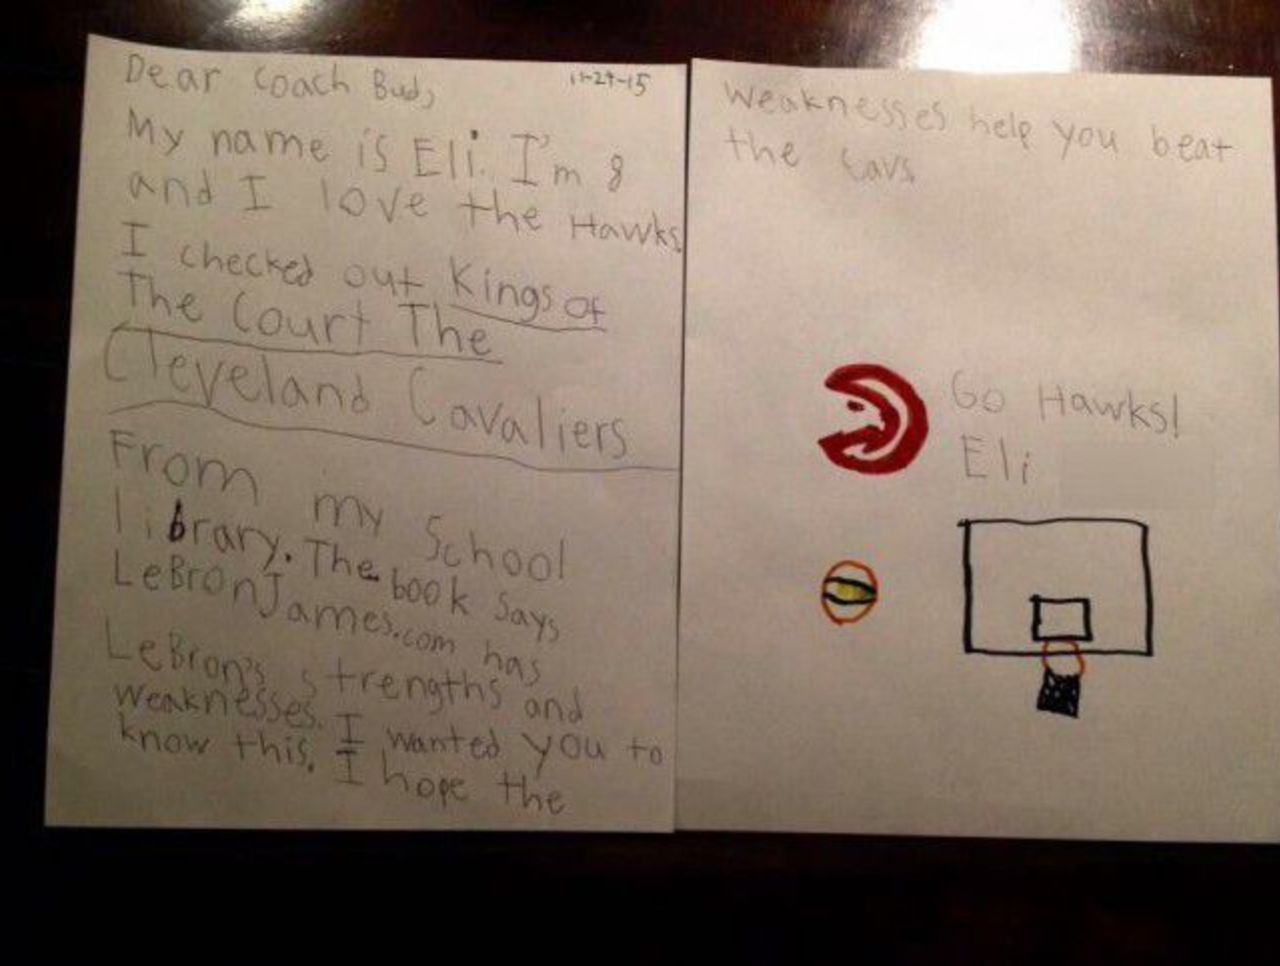 Dear Coach Bud,
11-29-15
My name is Eli. I'm 8
and I love the Hawks
I checked out Kings of
The Court The
Cleveland Cavaliers
From my School
library. The book says
LeBronJames.com has
LeBron's strengths and
weaknesses. I wanted you to
know this. I hope the
weaknesses help you beat
the Cavs
Go Hawks!
Eli